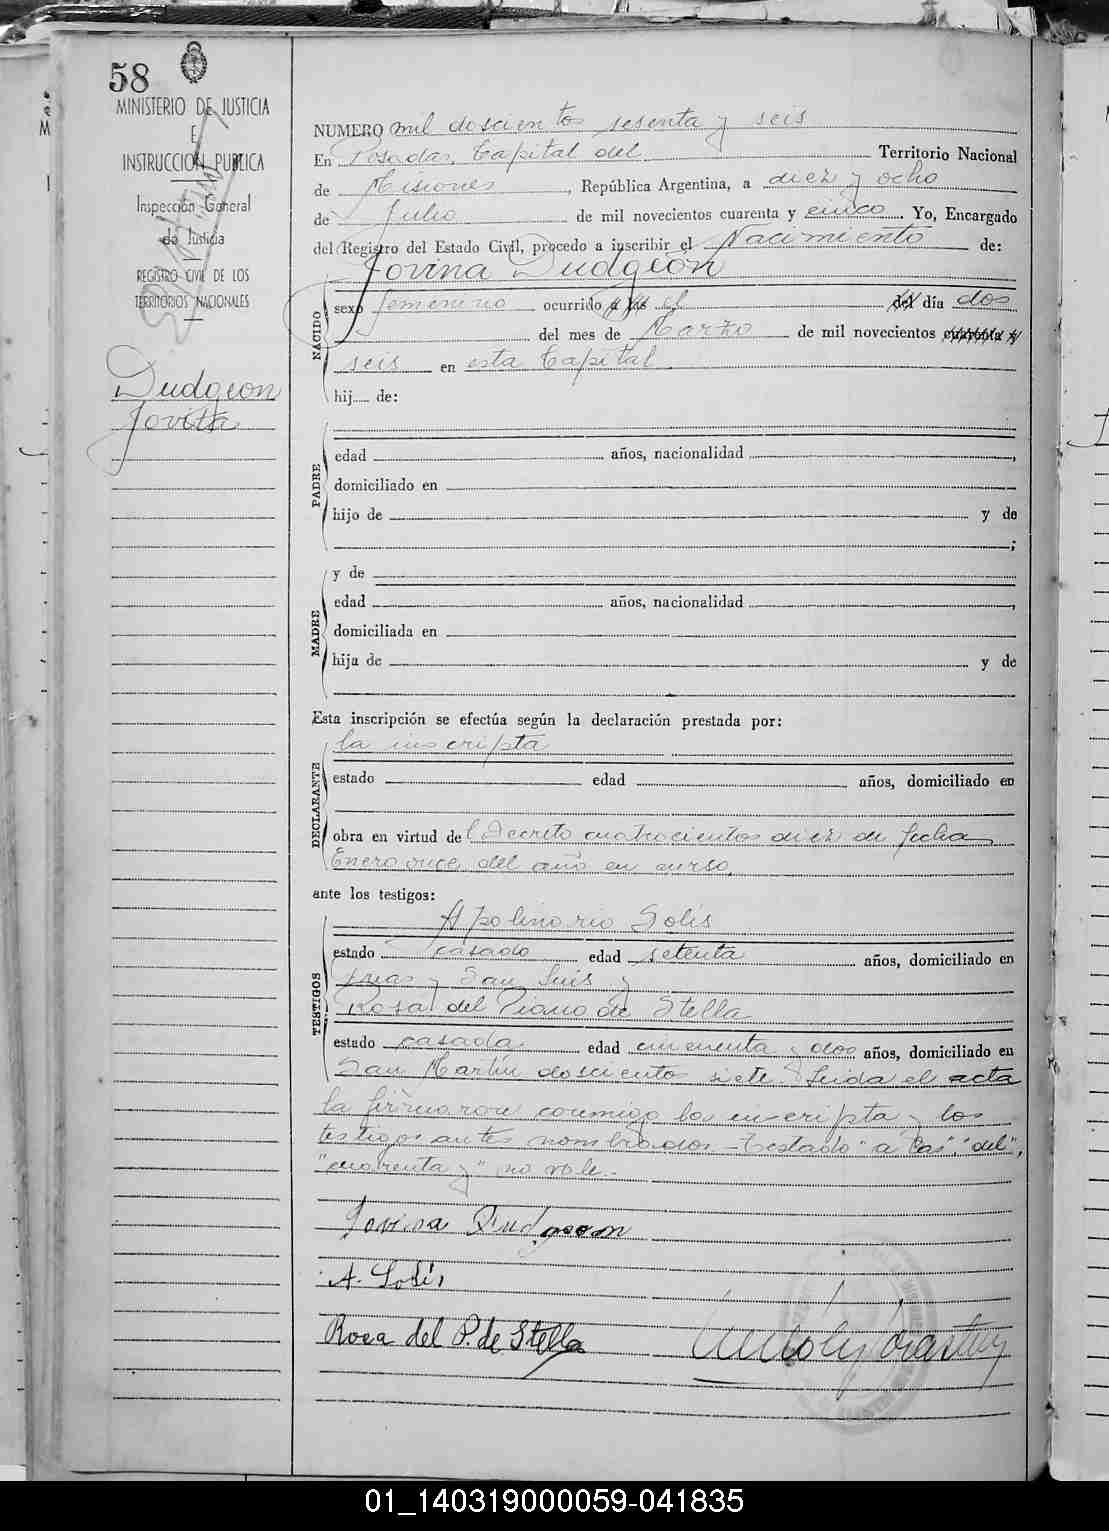 58
MINISTERIO DE JUSTICIA
E
INSTRUCCION PUBLICA
Inspección General
de Justicia
REGISTRO CIVIL DE LOS
TERRITORIOS NACIONALES
Dudgeon
Jovita
NUMERO mil doscientos sesenta y seis
En Posadas, Capital del Territorio Nacional
de Misiones, República Argentina, a diez y ocho
de Julio de mil novecientos cuarenta y cinco. Yo, Encargado
del Registro del Estado Civil, procedo a inscribir el Nacimiento de:
Jovina Dudgeon
NACIDO
sexo femenino ocurrido a las el del día dos
del mes de Marzo de mil novecientos cuarenta y
seis en esta Capital
hij..... de:
PADRE
edad años, nacionalidad ,
domiciliado en
hijo de y de
;
MADRE
y de
edad años, nacionalidad ,
domiciliada en
hija de y de
Esta inscripción se efectúa según la declaración prestada por:
DECLARANTE
la inscripta
estado edad años, domiciliado en
obra en virtud del Decreto cuatrocientos diez de fecha
Enero once del año en curso,
ante los testigos:
TESTIGOS
Apolinario Solis
estado casado edad setenta años, domiciliado en
y San Luis y
Rosa del Piano de Stella
estado casada edad cincuenta y dos años, domiciliado en
San Martín doscientos siete. Leida el acta
la firmaron conmigo la inscripta y los
testigos antes nombrados - Testado "a las", "del",
"cuarenta y" no vale.-
Jovina Dudgeon
A. Solís
Rosa del P. de Stella
01_140319000059-041835